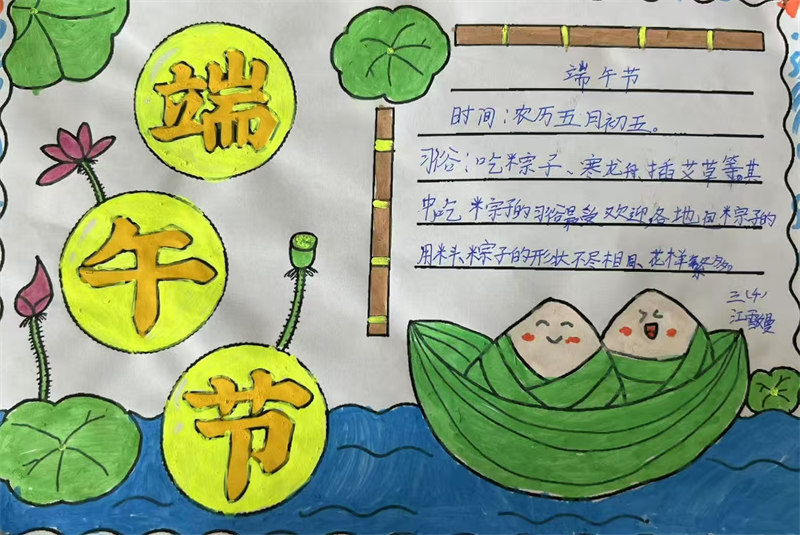 端午节
端午节
时间：农历五月初五。
习俗：吃粽子、赛龙舟、插艾草等。其
中吃粽子的习俗最受欢迎,各地由粽子的
用料、粽子的形状不尽相同、花样繁多。
三(4)
江雪曼